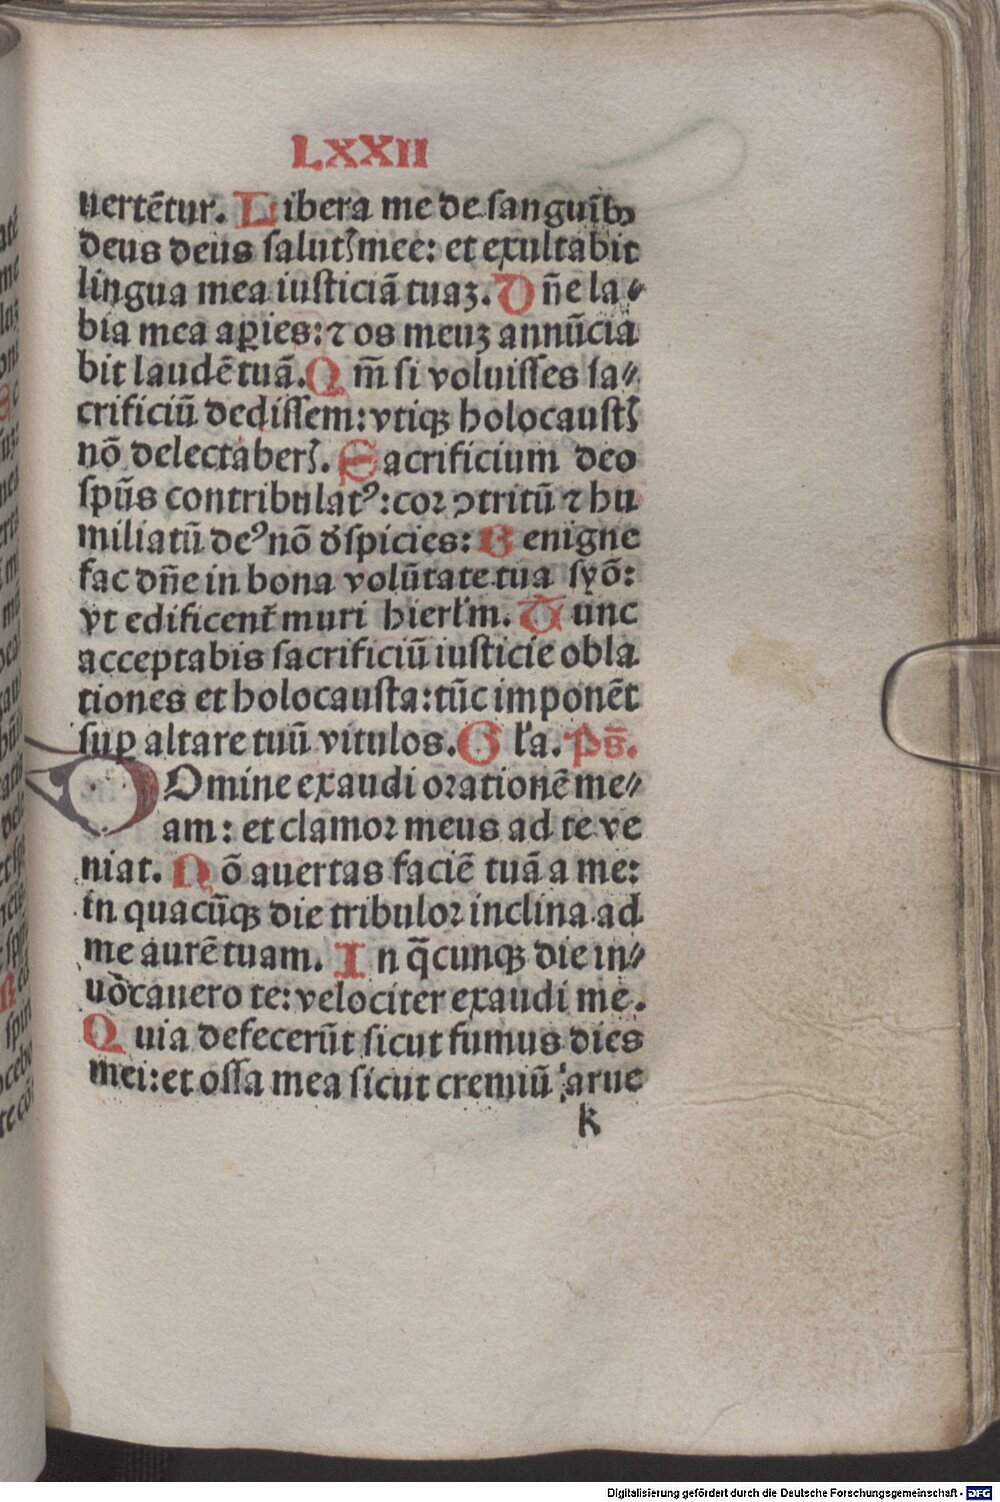 LXXII
uertẽtur. Libera me de sanguĩbꝫ
deus deus salutꝭ mee: et exultabit
lingua mea iusticiã tuaꝫ. Dñe la⸗
bia mea aꝑies: ⁊ os meuꝫ annũcia
bit laudẽ tuã. Qm̃ si voluisses sa⸗
crificiũ dedissem: vtiqꝫ holocaustꝭ
nõ delectaberꝭ. Sacrificium deo
spũs contribulatꝰ: coꝛ ↄtritũ ⁊ hu
miliatũ deꝰ nõ d̾spicies: Benigne
fac dñe in bona volũtate tua syõ:
vt edificent̃ muri hierl̃m. Tunc
acceptabis sacrificiũ iusticie obla
tiones et holocausta: tũc imponẽt
suꝑ altare tuũ vitulos. Gl̃a. Ps̃.
DOmine exaudi oꝛationẽ me⸗
am: et clamoꝛ meus ad te ve
niat. Nõ auertas faciẽ tuã a me:
in quacũqꝫ die tribuloꝛ inclina ad
me aurẽ tuam. In q̃cunqꝫ die in⸗
uocauero te: velociter exaudi me.
Quia defecerũt sicut fumus dies
mei: et ossa mea sicut cremiũ arue
k
Digitalisierung gefördert durch die Deutsche Forschungsgemeinschaft - DFG